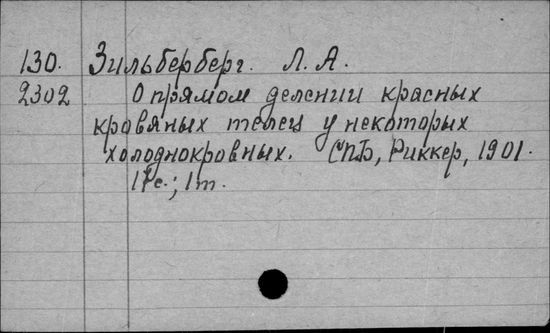 130. Зильберберг. Л. А.
2302 О прямом делении красных
кровяных телец у некоторых
холоднокровных. СПБ, Риккер, 1901.
с.; 1 т.